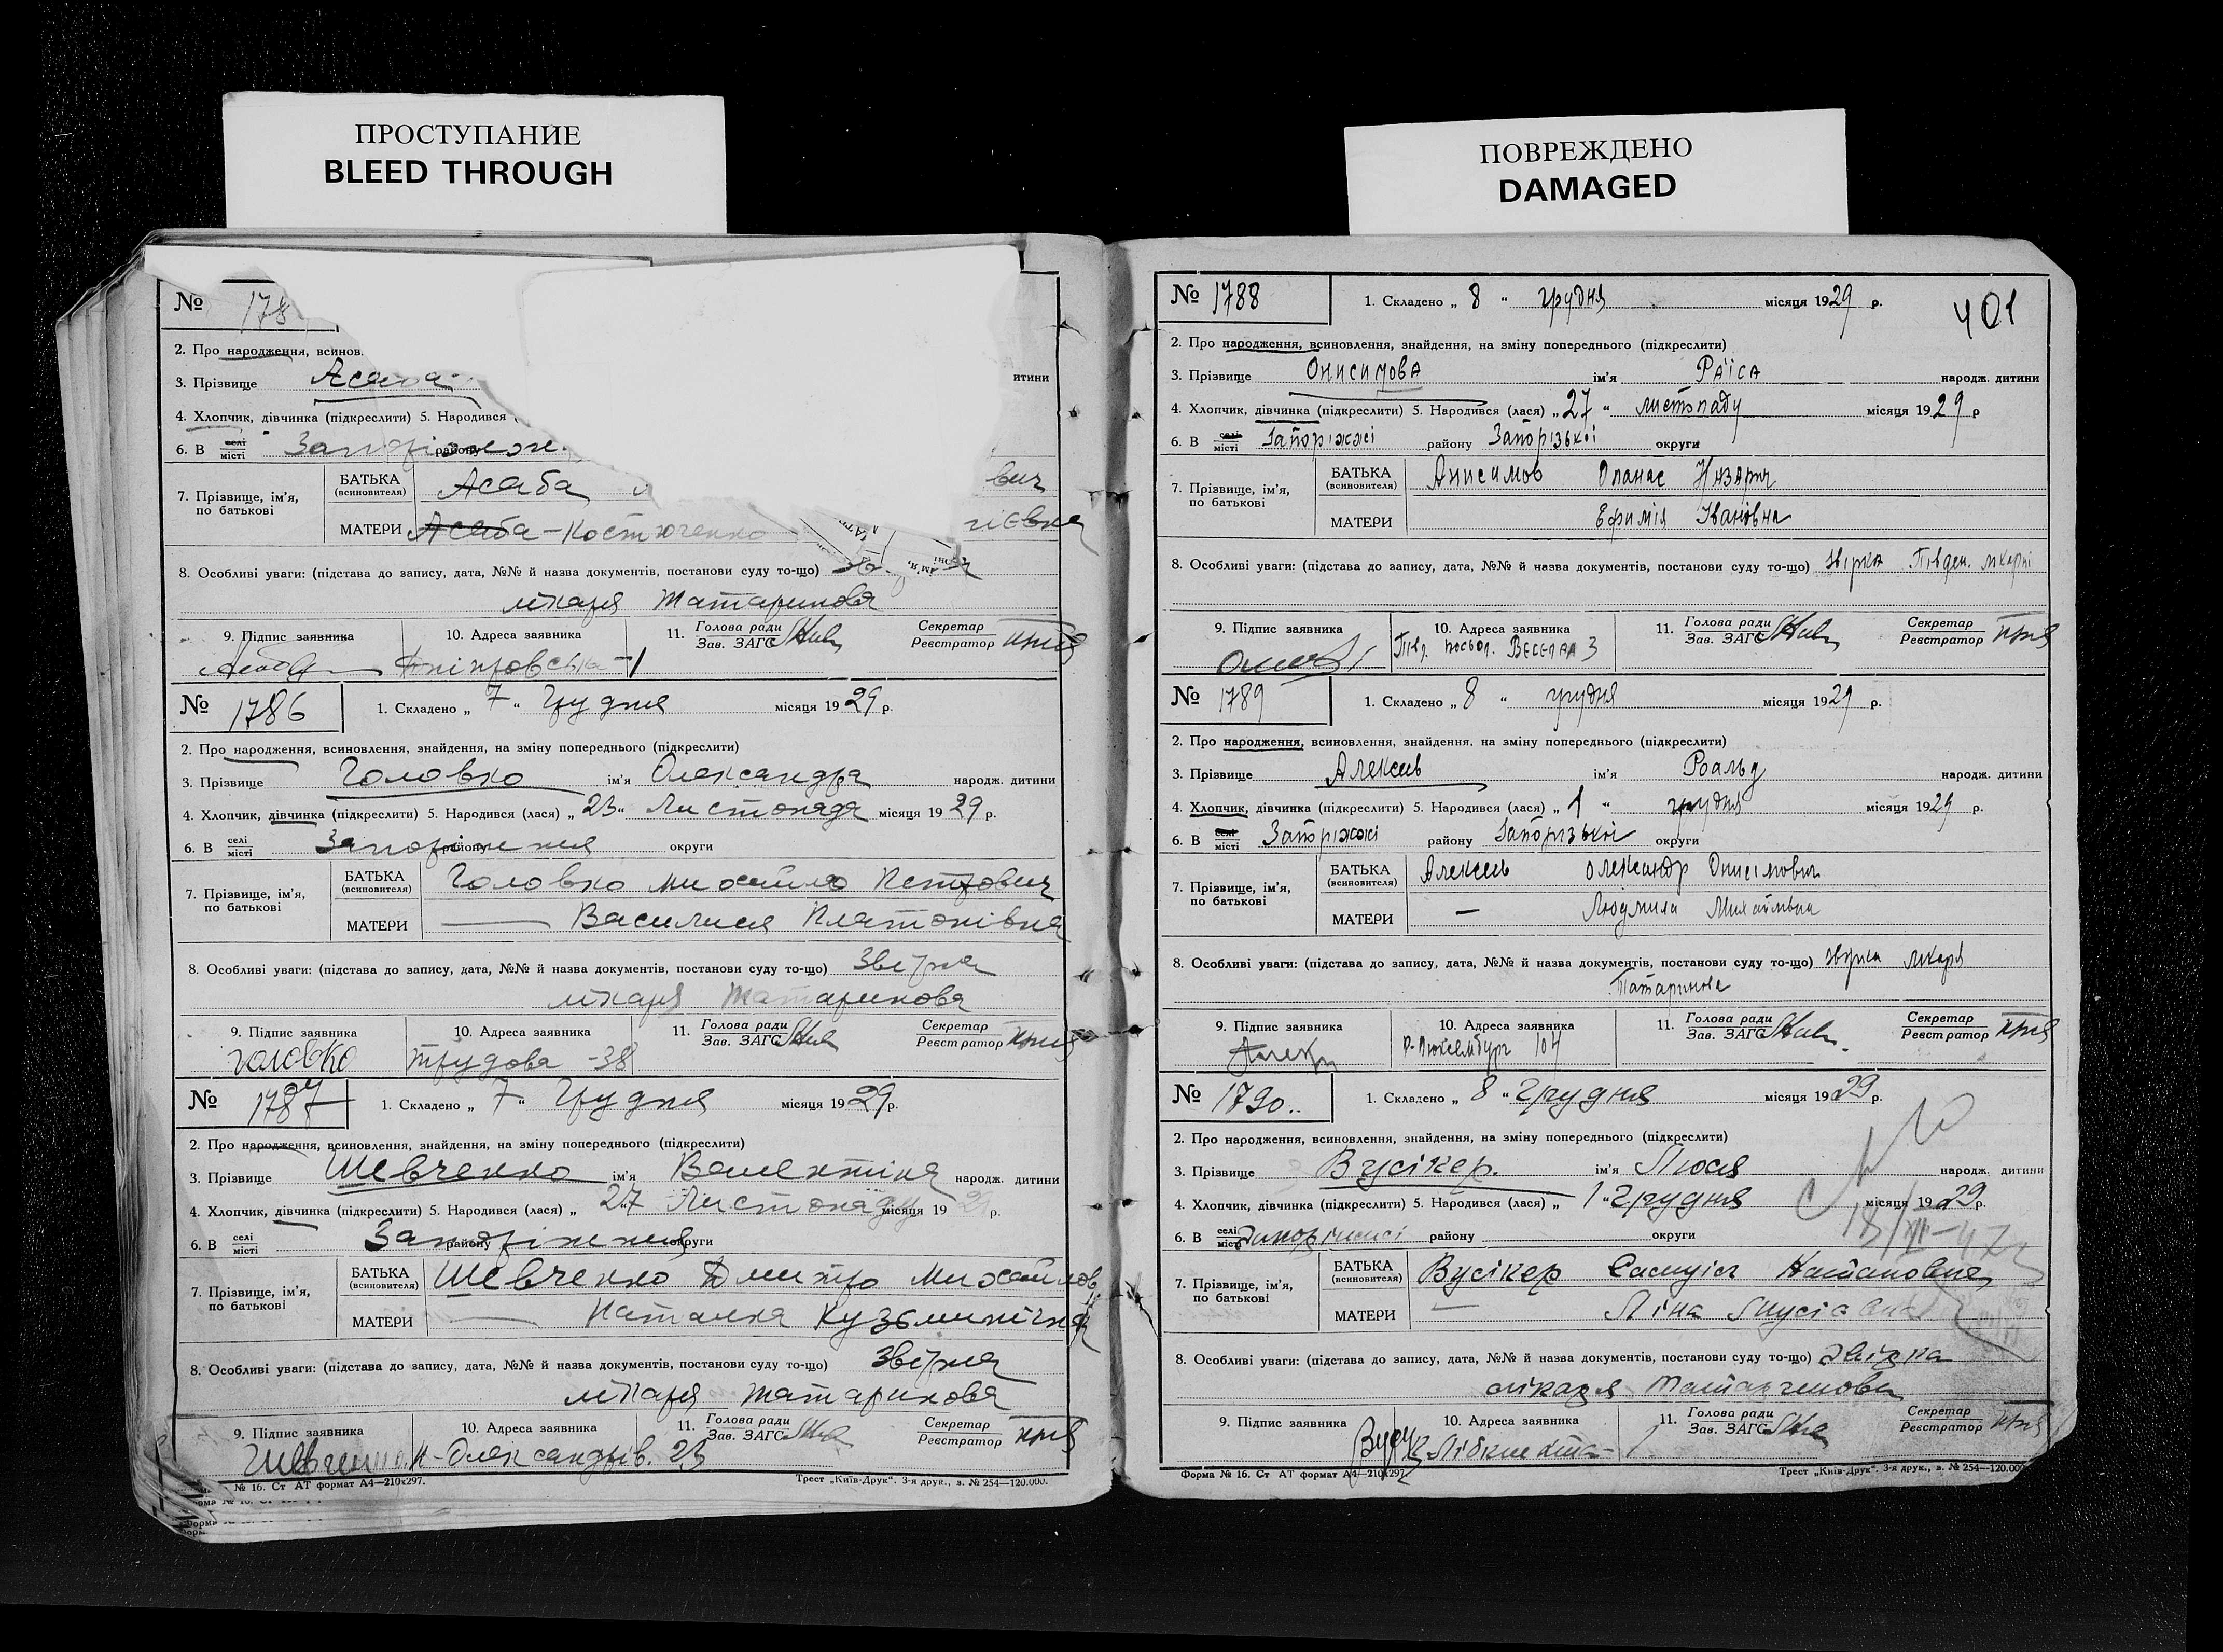 ПРОСТУПАНИЕ
BLEED THROUGH
ПОВРЕЖДЕНО
DAMAGED
№ 178
2. Про народження, всинов.
3. Прізвище Асаба
итини
4. Хлопчик, дівчинка (підкреслити) 5. Народився
6. В селі місті району
7. Прізвище, ім'я, по батькові
БАТЬКА (всиновителя) Асаба вич
МАТЕРИ Асаба-Костюченко гієвна
8. Особливі уваги: (підстава до запису, дата, №№ й назва документів, постанови суду то-що)
лікаря Татаринова
9. Підпис заявника 10. Адреса заявника 11. Голова ради Зав. ЗАГС Секретар Реєстратор
Дніпровська-1
№ 1786 1. Складено „ 7 “ Грудня місяця 1929 р.
2. Про народження, всиновлення, знайдення, на зміну попереднього (підкреслити)
3. Прізвище Головко ім'я Олександра народж. дитини
4. Хлопчик, дівчинка (підкреслити) 5. Народився (лася) „ 23 “ Листопада місяця 1929 р.
6. В селі місті Запоріжжя району округи
7. Прізвище, ім'я, по батькові
БАТЬКА (всиновителя) Головко Михайло Петрович
МАТЕРИ — Василися Платонівна
8. Особливі уваги: (підстава до запису, дата, №№ й назва документів, постанови суду то-що) Звірка
лікаря Татаринова
9. Підпис заявника 10. Адреса заявника 11. Голова ради Зав. ЗАГС Секретар Реєстратор
Головко Трудова -38
№ 1787 1. Складено „ 7 “ Грудня місяця 1929 р.
2. Про народження, всиновлення, знайдення, на зміну попереднього (підкреслити)
3. Прізвище Шевченко ім'я Валентіна народж. дитини
4. Хлопчик, дівчинка (підкреслити) 5. Народився (лася) „ 27 Листопаду місяця 1929 р.
6. В селі місті Запоріжжя району округи
7. Прізвище, ім'я, по батькові
БАТЬКА (всиновителя) Шевченко Дмитро Михайлов.
МАТЕРИ — Наталка Кузьминічна
8. Особливі уваги: (підстава до запису, дата, №№ й назва документів, постанови суду то-що) Звірка
лікаря Татаринова
9. Підпис заявника 10. Адреса заявника 11. Голова ради Зав. ЗАГС Секретар Реєстратор
Шевченко Н-Олександрів. 23
№ 16. Ст АТ формат А4—210х297. Трест „Київ-Друк“. 3-я друк., з. № 254—120.000.
№ 1788 1. Складено „ 8 “ грудня місяця 1929 р. 401
2. Про народження, всиновлення, знайдення, на зміну попереднього (підкреслити)
3. Прізвище Онисимова ім'я Раїса народж. дитини
4. Хлопчик, дівчинка (підкреслити) 5. Народився (лася) „ 27 “ листопаду місяця 1929 р
6. В селі місті Запоріжжі району Запорізької округи
7. Прізвище, ім'я, по батькові
БАТЬКА (всиновителя) Анисимов Опанас Назарич
МАТЕРИ Ефимія Івановна
8. Особливі уваги: (підстава до запису, дата, №№ й назва документів, постанови суду то-що) звірка Півден. лікарні
9. Підпис заявника 10. Адреса заявника 11. Голова ради Зав. ЗАГС Секретар Реєстратор
посьол. Весела 3
№ 1789 1. Складено „ 8 “ грудня місяця 1929 р.
2. Про народження, всиновлення, знайдення, на зміну попереднього (підкреслити)
3. Прізвище Алексів ім'я Роальд народж. дитини
4. Хлопчик, дівчинка (підкреслити) 5. Народився (лася) „ 1 “ грудня місяця 1929 р.
6. В селі місті Запоріжжі району Запорізької округи
7. Прізвище, ім'я, по батькові
БАТЬКА (всиновителя) Олександр Онисімович
МАТЕРИ — Людмила Михайлівна
8. Особливі уваги: (підстава до запису, дата, №№ й назва документів, постанови суду то-що) звірка лікаря
Татаринова
9. Підпис заявника 10. Адреса заявника 11. Голова ради Зав. ЗАГС Секретар Реєстратор
Р-Люксембург 104
№ 1790.. 1. Складено „ 8 “ Грудня місяця 1929 р.
2. Про народження, всиновлення, знайдення, на зміну попереднього (підкреслити)
3. Прізвище Вусікер. ім'я Люся народж. дитини
4. Хлопчик, дівчинка (підкреслити) 5. Народився (лася) „ 1 “ Грудня місяця 1929 р.
6. В селі місті Запоріжжі району округи
18/XII-47
7. Прізвище, ім'я, по батькові
БАТЬКА (всиновителя) Вусікер Самуіл
МАТЕРИ — Ліна
8. Особливі уваги: (підстава до запису, дата, №№ й назва документів, постанови суду то-що) Звірка
лікаря
9. Підпис заявника 10. Адреса заявника 11. Голова ради Зав. ЗАГС Секретар Реєстратор
Форма № 16. Ст АТ формат А4—210х297. Трест „Київ-Друк“. 3-я друк., з. № 254—120.000.